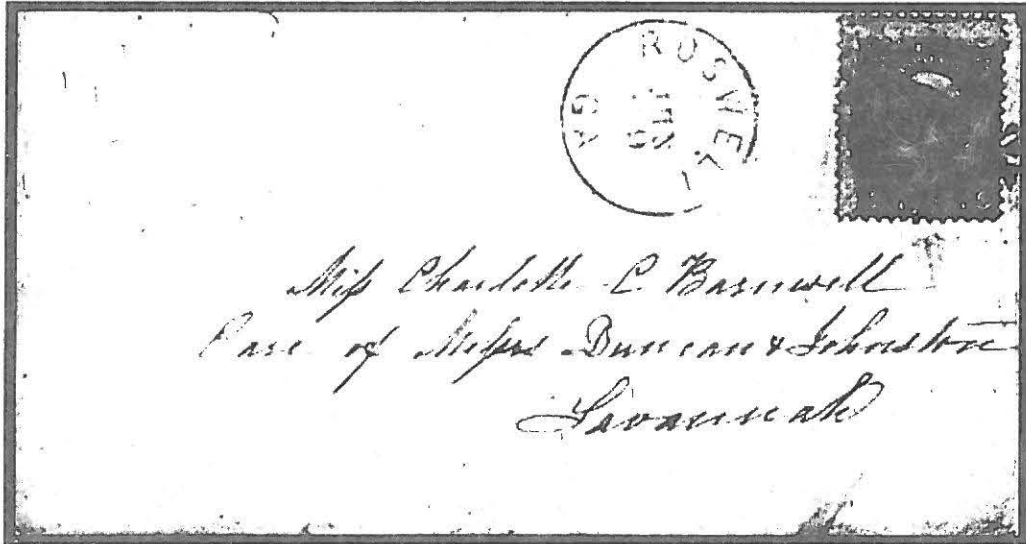 ROSWEL GA
JUL
9
Miss Charlotte C Barnwell
Care of Messrs Duncan & Johnston
Savannah